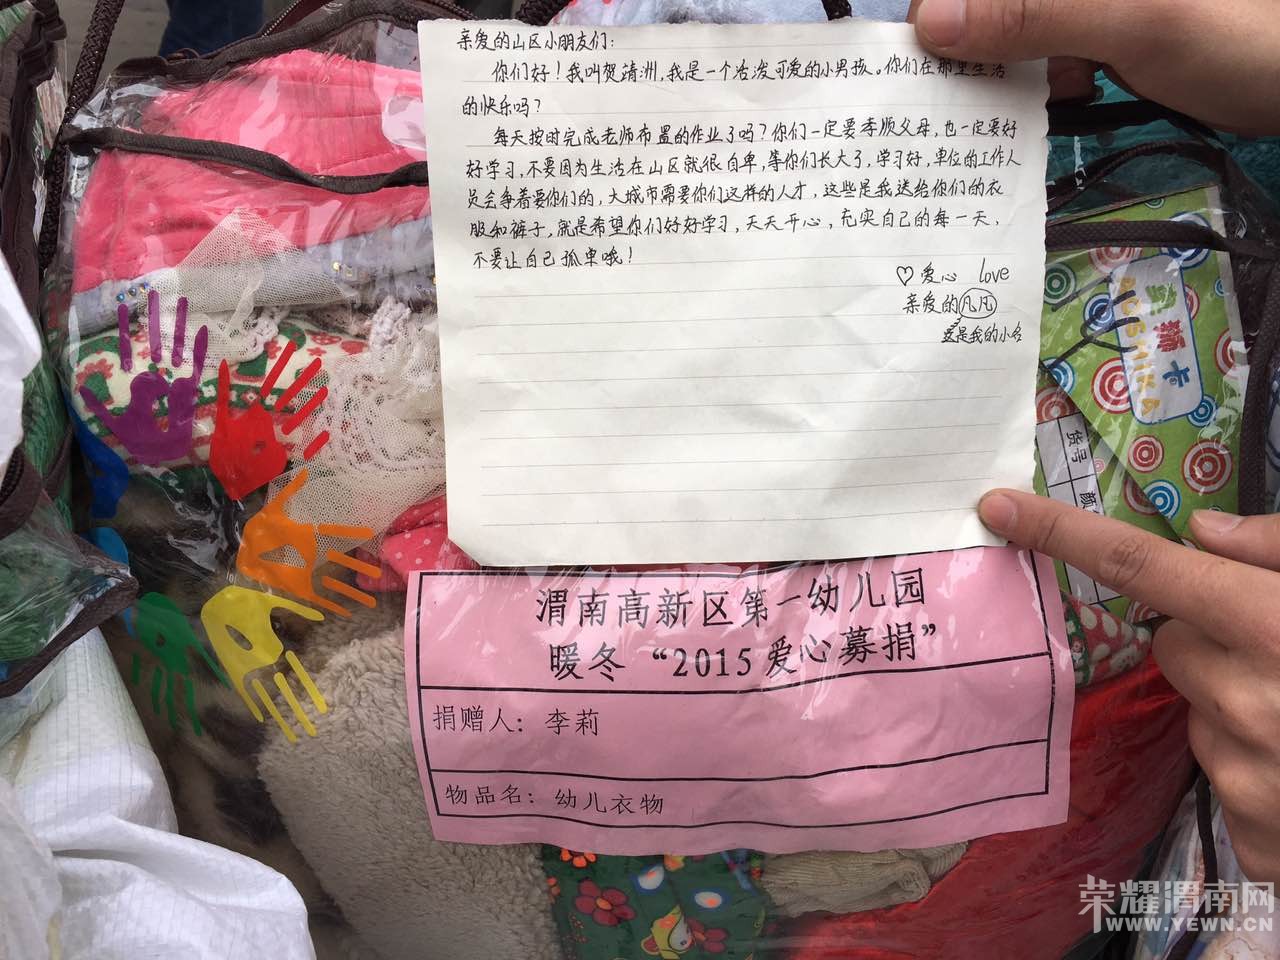 亲爱的山区小朋友们：
你们好！我叫贺靖洲，我是一个活泼可爱的小男孩。你们在那里生活
的快乐吗？
每天按时完成老师布置的作业了吗？你们一定要孝顺父母，也一定要好
好学习，不要因为生活在山区就很自卑，等你们长大了，学习好，单位的工作人
员会争着要你们的，大城市需要你们这样的人才，这些是我送给你们的衣
服和裤子，就是希望你们好好学习，天天开心，充实自己的每一天，
不要让自己孤单哦！
♡爱心 love
亲爱的凡凡
这是我的小名
狮卡
货号
渭南高新区第一幼儿园
暖冬“2015爱心募捐”
捐赠人：李莉
物品名：幼儿衣物
荣耀渭南网
WWW.YEWN.CN